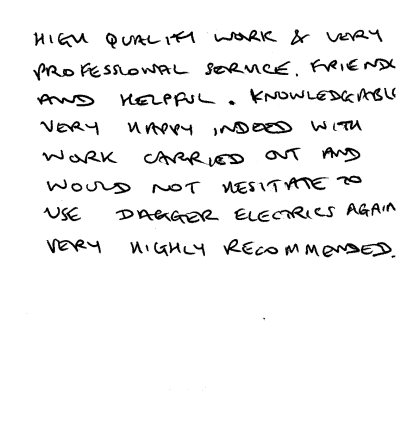 HIGH QUALITY WORK & VERY
PROFESSIONAL SERVICE. FRIEND
AND HELPFUL. KNOWLEDGABL
VERY HAPPY INDEED WITH
WORK CARRIED OUT AND
WOULD NOT HESITATE TO
USE DAGGER ELECTRICS AGAIN
VERY HIGHLY RECOMMENDED.